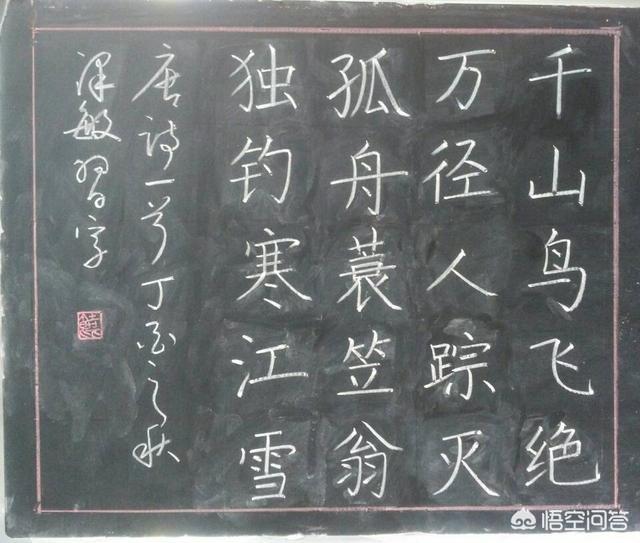 千山鸟飞绝
万径人踪灭
孤舟蓑笠翁
独钓寒江雪
唐诗一首丁酉之秋
敏习字
悟空问答